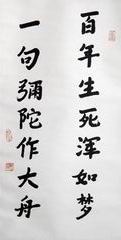 百年生死浑如梦
一句彌陀作大舟